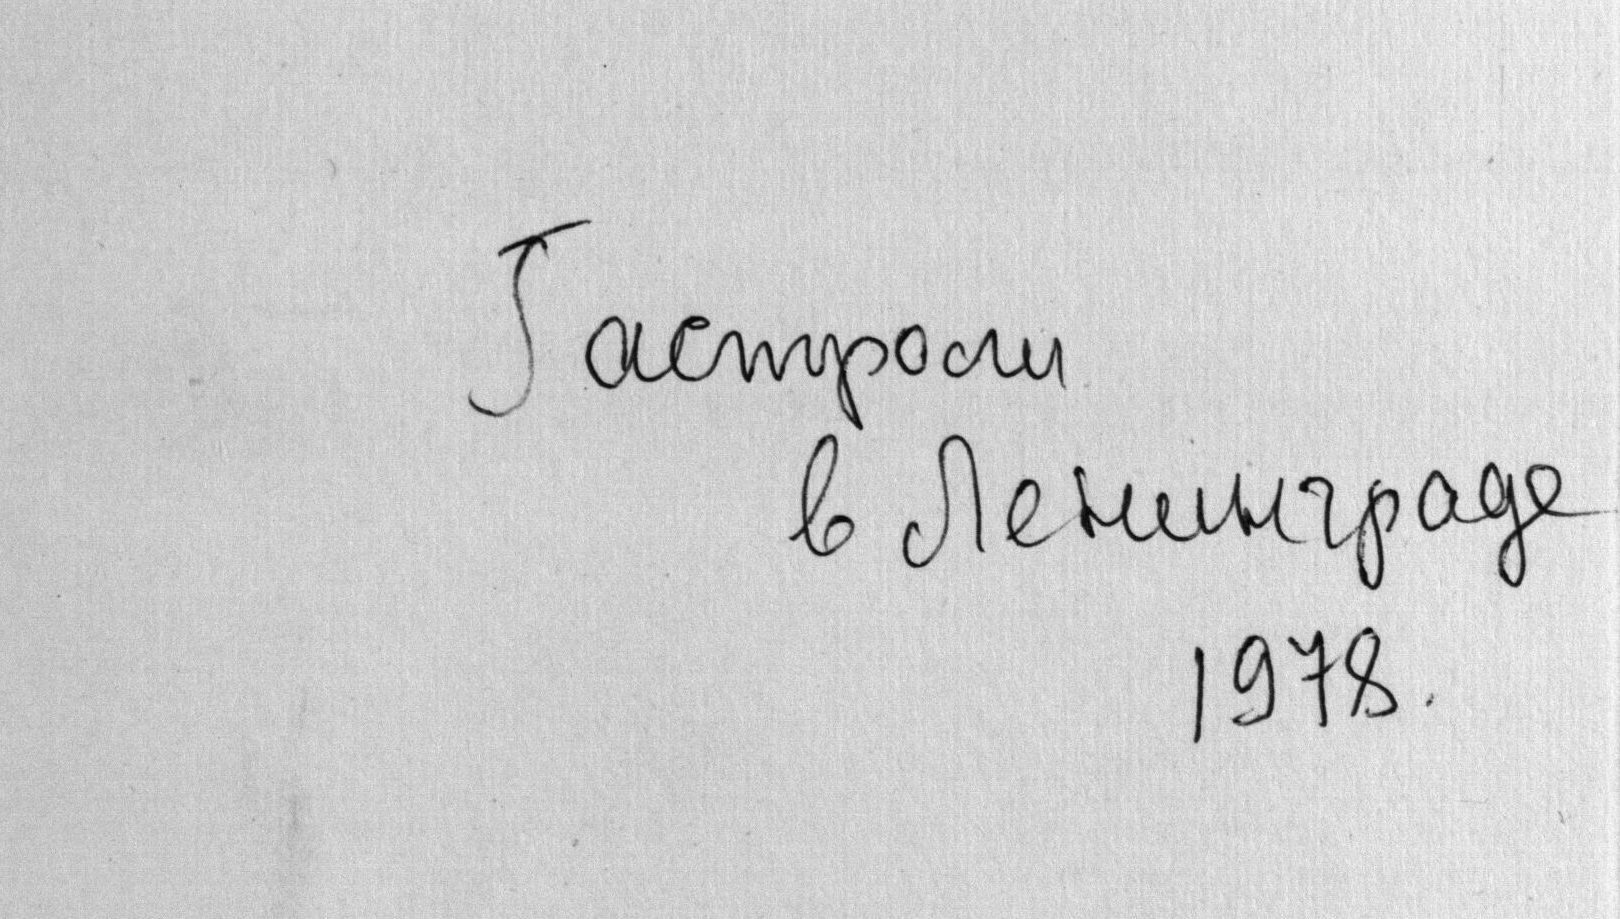 Гастроли
в Ленинграде
1978.